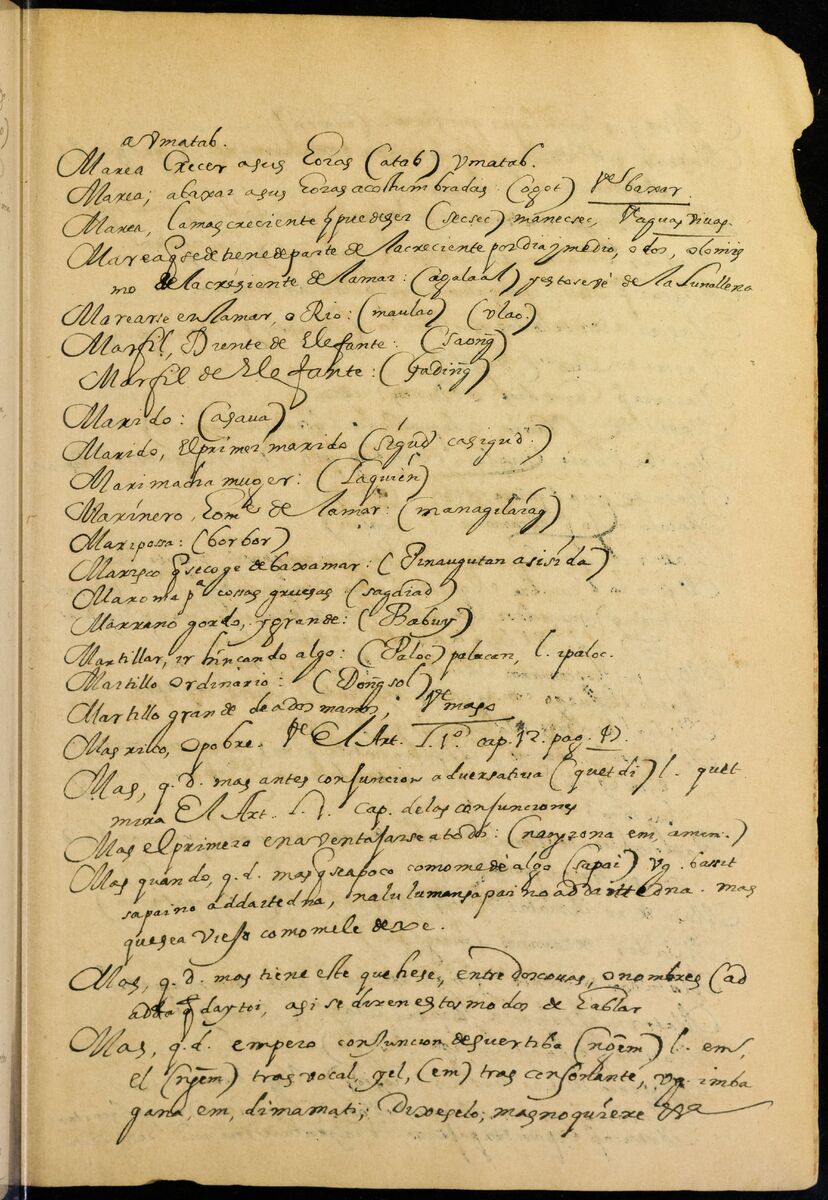 a Vmatab.
Marea Crecer asus horas (atab) vmatab.
Marea; abaxar asus horas acostumbradas (agot) Ve baxar.
Marea, la mas creciente q̃ puede ser (secsec) manecsec, Ve aguas viuas.
Marea q̃ se detiene de parte de la creciente por dia y medio, o dos, o lo mis
mo de la cresiente de la mar: (agalaál) y esto se vé de la Luna llena
Marearse en la mar, o Rio: (maulao) (vlao.)
Marfil, Diente de Elefante: (saong̃)
Marfil de Elefante: (Gading̃)
Marido: (asaua)
Marido, El primer marido (sígud casigud.)
Marimacha muger: (Laquién)
Marínero, homᵉ de la mar: (managtaíag)
Mariposa: (borbor)
Marisco q̃ se coge de baxamar: (Pinaugutan a sisída)
Maroma pª cossas gruesas (sagdiad)
Marrano gordo, y grande: (Babuy)
Martillar, ir hincando algo: (Paloc) palacan, l. ipaloc.
Maitillo Ordinario: (Dong̃sol)
Martillo grande de a dos manos, Ve maso
Mas rico, o pobre. Ve El Art. L. 1º cap. 12. pag.
Mas, q. d. mas antes confuncion adversativa (quet di) l. quet
mira El Art. L. 1. Cap. de las confunciones
Mas el primero en aventafarse a todos: (nary zona em, amin.)
Mas quando, q. d. mas q̃ sea poco como me dé algo (sapai) vg. bassit
sapai no addaitedna, nalulumen sapai no addaittedna. mas
que sea viefo como me le dexe.
Mas, q. d. mas tiene este que hese, entre dos cosas, o nombres (ad
adda q̃ daytoi, asi se dizen estos modos de hablar
Mas, q. d. empero confuncion desuertiba (ng̃em) l. em,
el (ng̃em) tras vocal y el, (em) tras consonante, vg. imba
gana, em, dimamati; Dixeselo, mas no quiere &ª